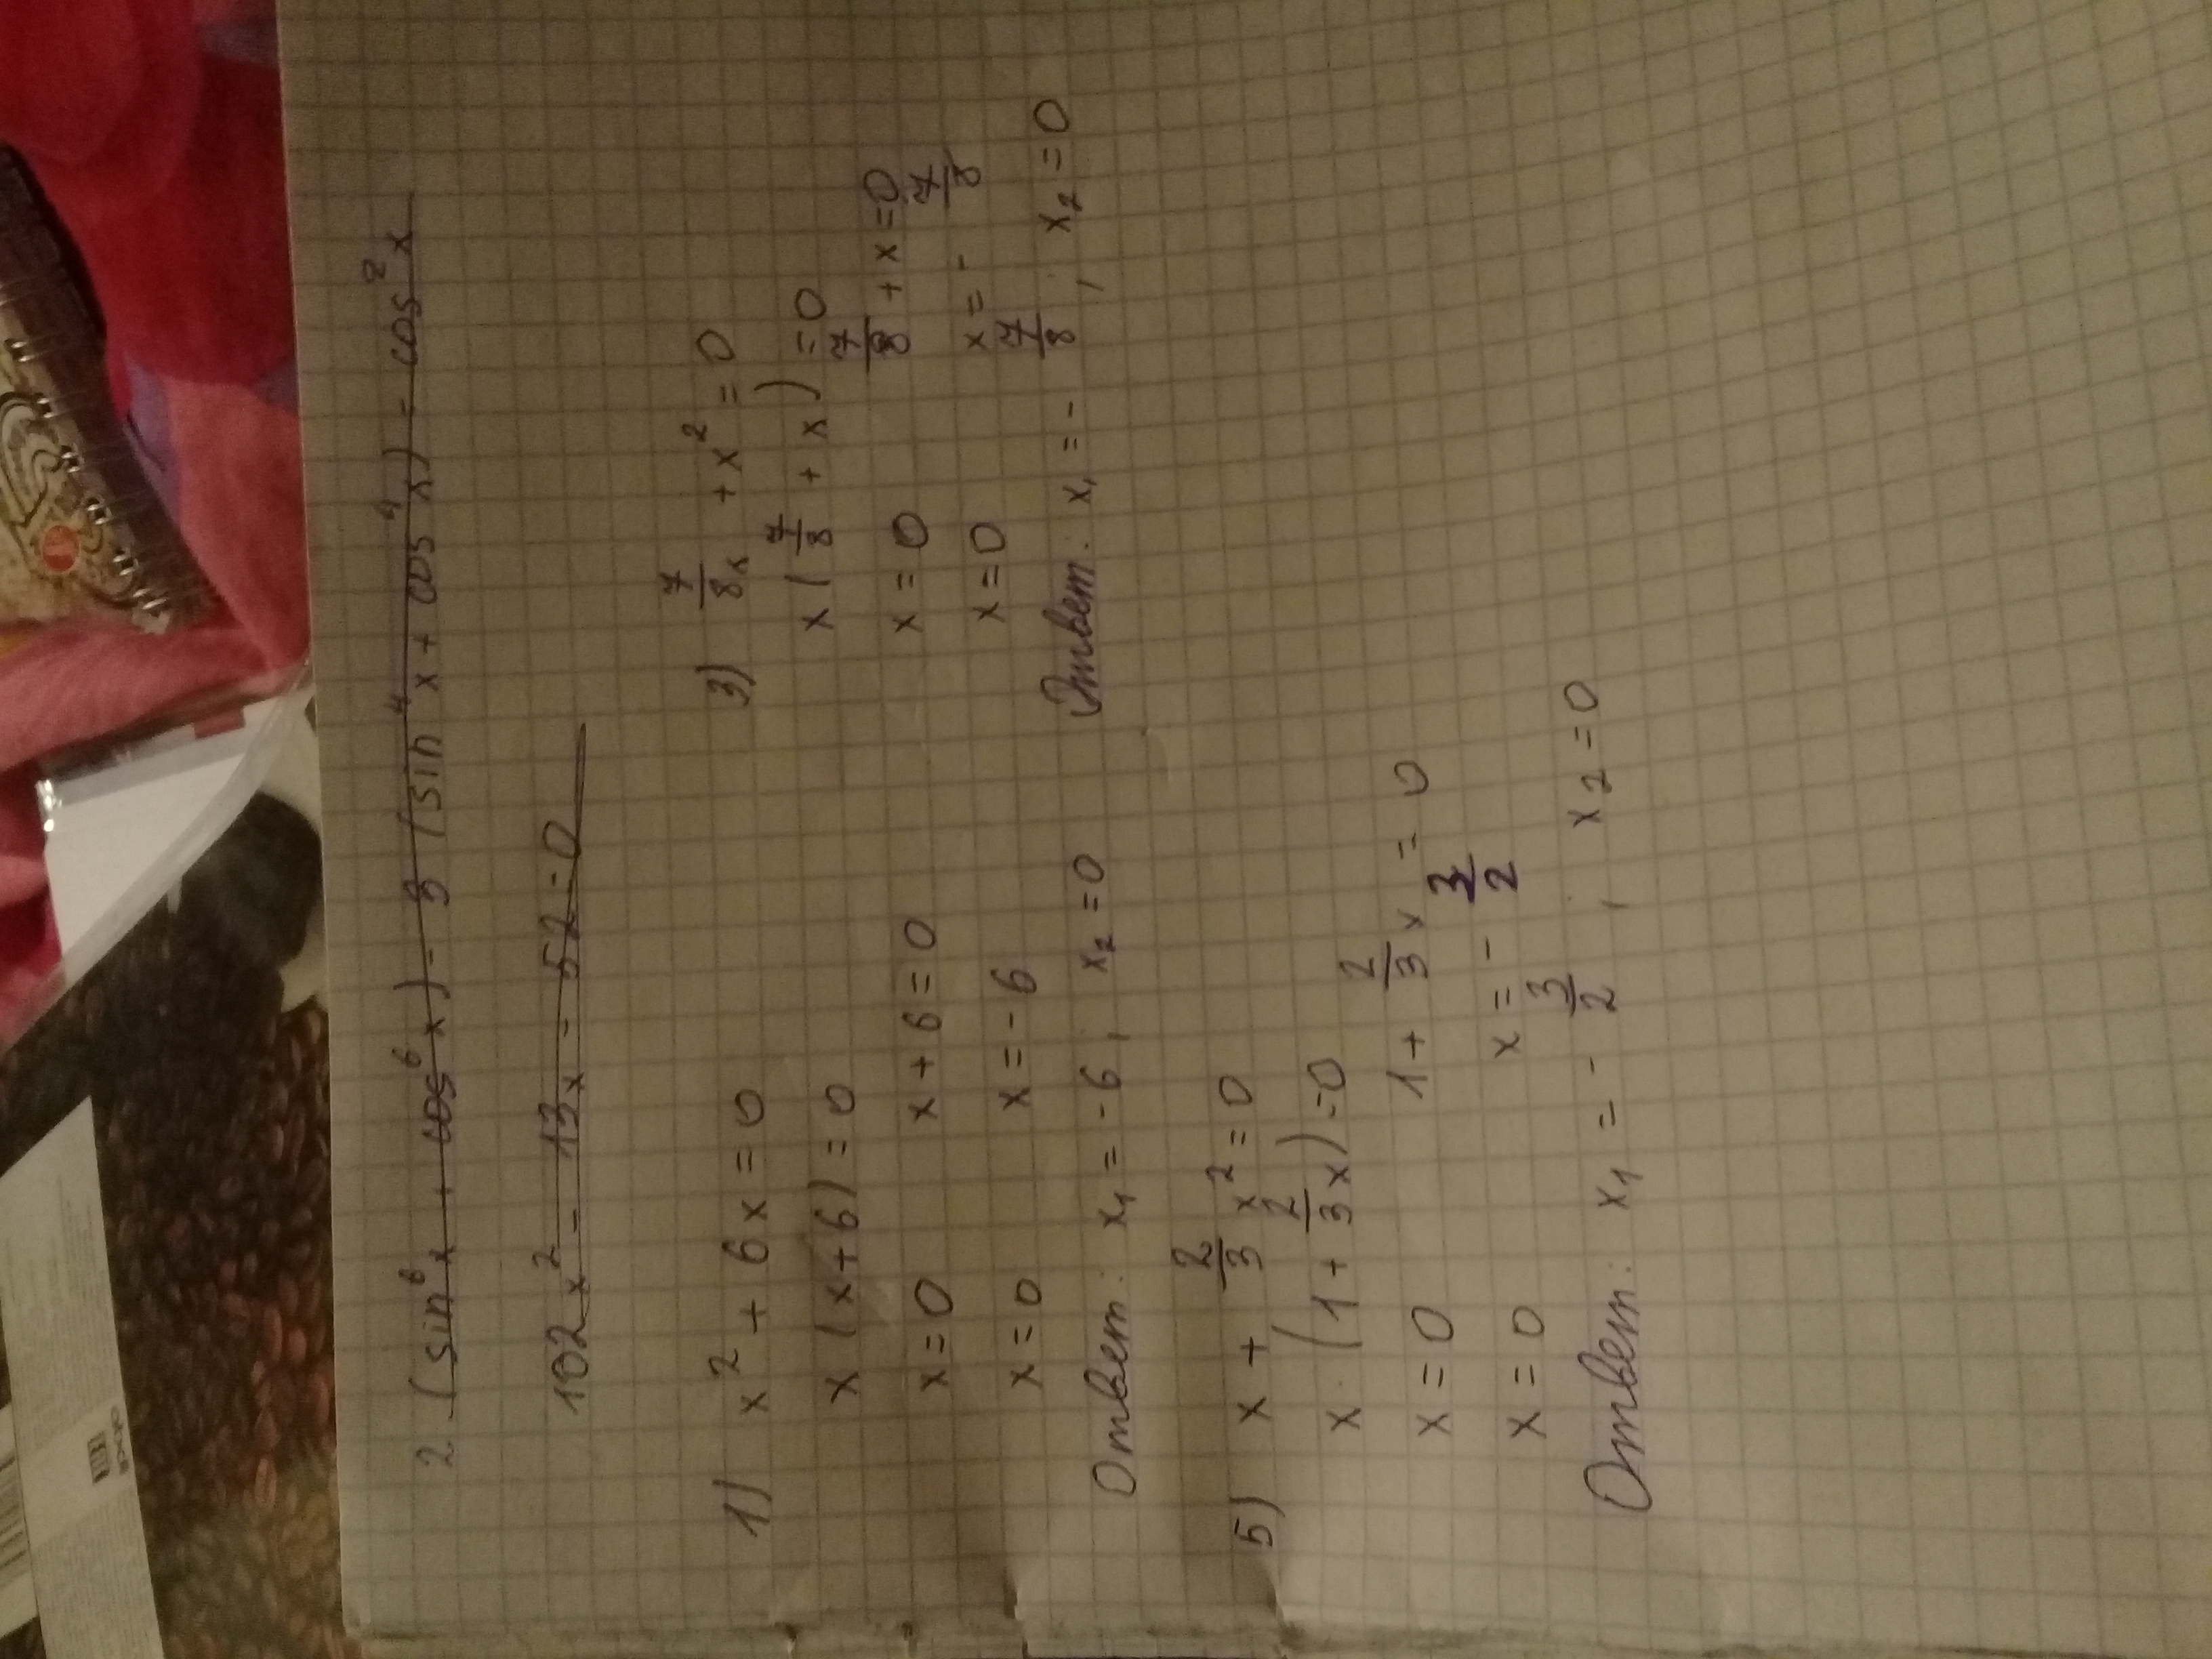 2 (sin⁶x + cos⁶x) - 3 (sin⁴x + cos⁴x) = cos²x
102x² - 13x - 52 = 0
1) x² + 6x = 0
x(x+6) = 0
x=0 x+6=0
x=0 x=-6
Ответ: x₁ = -6, x₂=0
3) 7/8x + x² = 0
x(7/8 + x) = 0
x=0 7/8 + x=0
x=0 x=-7/8
Ответ: x₁ = -7/8, x₂=0
5) x + 2/3 x² = 0
x (1 + 2/3x) = 0
x=0 1 + 2/3x = 0
x=0 x = -3/2
Ответ: x₁ = -3/2, x₂=0